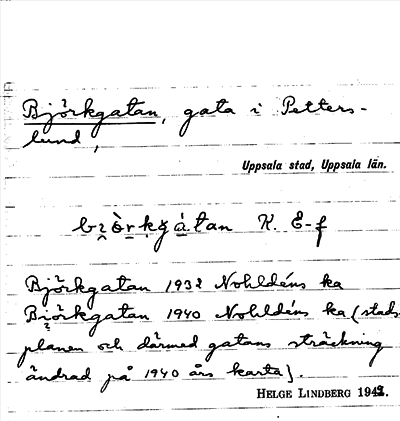 Björkgatan, gata i Petters-
lund,
Uppsala stad, Uppsala län.
K. E-f
Björkgatan 1932 Nohldéns ka
Björkgatan 1940 Nohldéns ka (stads-
planen och därmed gatans sträckning
ändrad på 1940 års karta).
HELGE LINDBERG 1942.